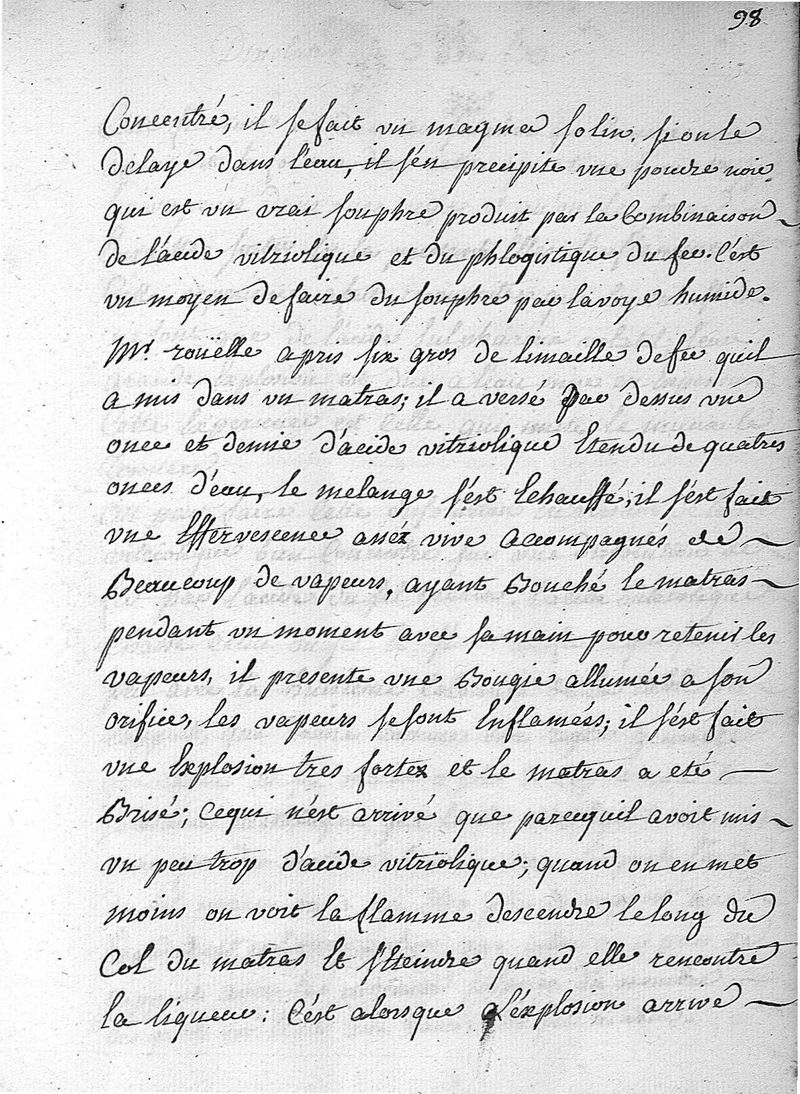 98
Concentré, il se fait un magma solin. si on le
delaye dans l'eau, il s'en precipite une poudre noire
qui est un vrai souphre produit par la Combinaison
de l'acide vitriolique et du phlogistique du fer. C'est
un moyen de faire du souphre par la voye humide.
Mr. rouëlle a pris six gros de limaille de fer quil
a mis dans un matras; il a versé par dessus une
once et demie d'acide vitriolique Etendu de quatres
onces d'eau, le melange s'est Echauffé; il s'est fait
une Effervescence asséz vive accompagnés de
Beaucoup de vapeurs, ayant Bouché le matras
pendant un moment avec sa main pour retenir les
vapeurs, il presente une Bougie allumée a son
orifice, les vapeurs se sont Enflamées; il s'est fait
une Explosion tres forte et le matras a eté
Brisé; Ce qui n'est arrivé que parcequil avoit mis
un peu trop d'acide vitriolique; quand on en met
moins on voit la flamme descendre le long du
Col du matras Et s'Eteindre quand elle rencontre
la liqueur: C'est alorsque l'éxplosion arrive